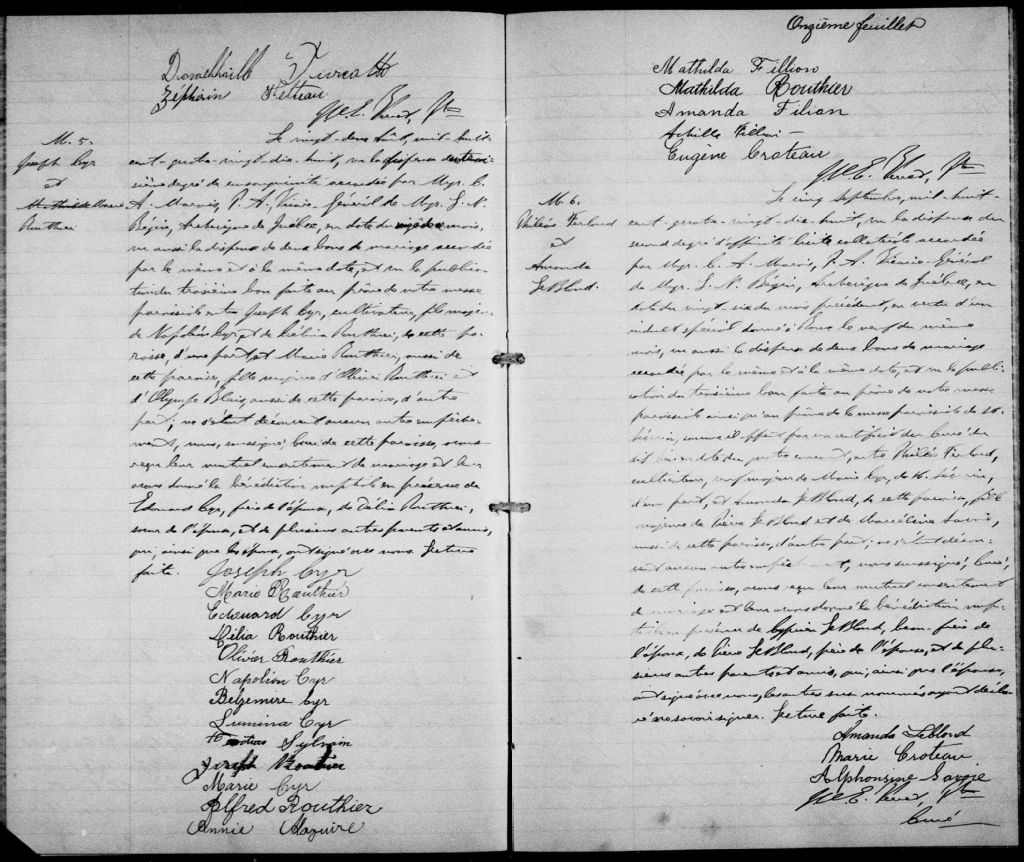 Zéphirin
M. 5.
Joseph Cyr
et
Marie
Routhier
Le vingt-deux Août, mil-huit-
cent-quatre-vingt-dix-huit, vu la dispense du troi-
sième degré de consanguinité accordée par Mgr. C.
A. Marois, P. A. Vicaire-Général de Mgr. L. N.
Bégin, Archevêque de Québec, en date du mois,
vu aussi la dispense de deux bans de mariage accordée
par le même et à la même date, et vu la publica-
tion du troisième ban faite au prône de notre messe
paroissiale entre Joseph Cyr, cultivateur, fils majeur
de Napoléon Cyr, et de Routhier, de cette pa-
roisse, d'une part; et Marie Routhier, aussi de
cette paroisse, fille majeure d'Olivier Routhier et
d'Olympe Blais, aussi de cette paroisse, d'autre
part; ne s'étant découvert aucun autre empêche-
ment, nous, soussigné, curé de cette paroisse, avons
reçu leur mutuel consentement de mariage et leur
avons donné la bénédiction nuptiale en présence de
Edouard Cyr, frère de l'époux, de Délia Routhier,
soeur de l'épouse, et de plusieurs autres parents et amis,
qui, ainsi que les époux, ont signé avec nous. Lecture
faite.
Joseph Cyr
Marie Routhier
Edouard Cyr
Délia Routhier
Olivier Routhier
Napoléon Cyr
Belzemire Cyr
Lumina Cyr
Sylvain
Joseph Routhier
Marie Cyr
Alfred Routhier
Annie Maguire
Onzième feuillet
Mathilda Fillion
Mathilda Routhier
Amanda Filion
Achille
Eugène Croteau
M 6.
Philéas Ferland
et
Amanda
LeBlond.
Le cinq Septembre, mil-huit-
cent-quatre-vingt-dix-huit, vu la dispense du
second degré d'affinité licite collatérale accordée
par Mgr. C. A. Marois, P. A. Vicaire-Général
de Mgr. L. N. Bégin, Archevêque de Québec, en
date du vingt-six du mois précédent, en vertu d'un
indult spécial donné à Rome le neuf du même
mois, vu aussi la dispense de deux bans de mariage
accordée par le même et à la même date, et vu la publi-
cation du troisième ban faite au prône de notre messe
paroissiale ainsi qu'au prône de la messe paroissiale de St.
Séverin, comme il appert par un certificat du Curé du
dit lieu en date du quatre courant, entre Philéas Ferland,
cultivateur, veuf majeur de Marie Cyr, de St. Séverin,
d'une part, et Amanda LeBlond, de cette paroisse, fille
majeure de Pierre LeBlond et de Marcéline Savoie,
aussi de cette paroisse, d'autre part; ne s'étant décou-
vert aucun autre empêchement, nous, soussigné, Curé,
de cette paroisse, avons reçu leur mutuel consentement
de mariage et leur avons donné la bénédiction nup-
tiale en présence de Cyprien LeBlond, beau-frère de
l'époux, de Pierre LeBlond, père de l'épouse, et de plu-
sieurs autres parents et amis, qui, ainsi que l'épouse,
ont signé avec nous, les autres sus-nommés ayant décla-
ré ne savoir signer. Lecture faite.
Amanda Leblond
Marie Croteau
Alphonsine Savoie
Curé